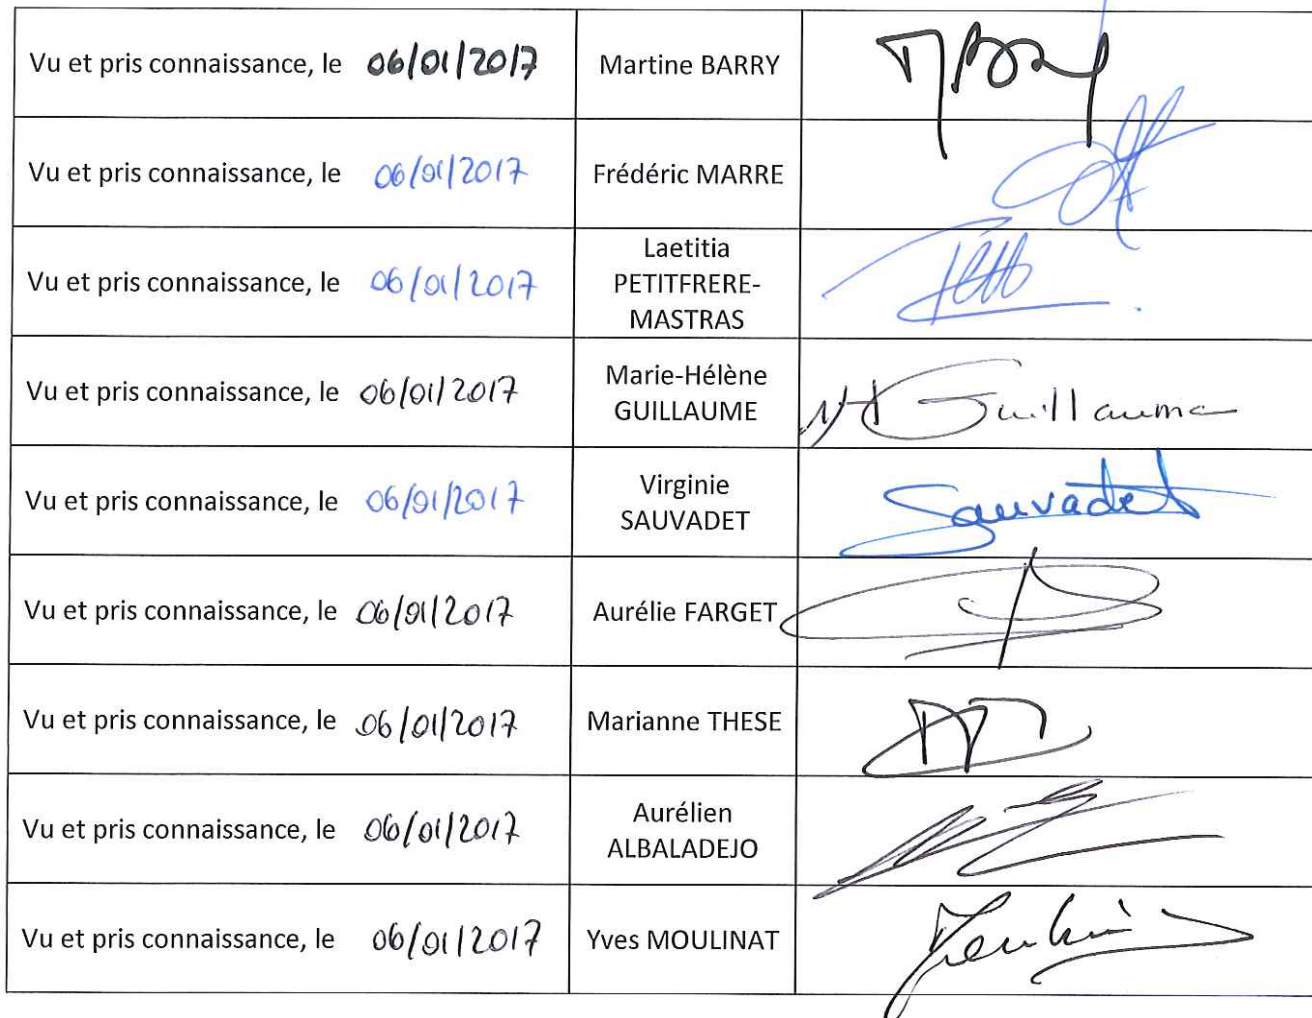 Vu et pris connaissance, le 06/01/2017
Martine BARRY
Vu et pris connaissance, le 06/01/2017
Frédéric MARRE
Vu et pris connaissance, le 06/01/2017
Laetitia
PETITFRERE-
MASTRAS
Vu et pris connaissance, le 06/01/2017
Marie-Hélène
GUILLAUME
MH Guillaume
Vu et pris connaissance, le 06/01/2017
Virginie
SAUVADET
Sauvadet
Vu et pris connaissance, le 06/01/2017
Aurélie FARGET
Vu et pris connaissance, le 06/01/2017
Marianne THESE
Vu et pris connaissance, le 06/01/2017
Aurélien
ALBALADEJO
Vu et pris connaissance, le 06/01/2017
Yves MOULINAT